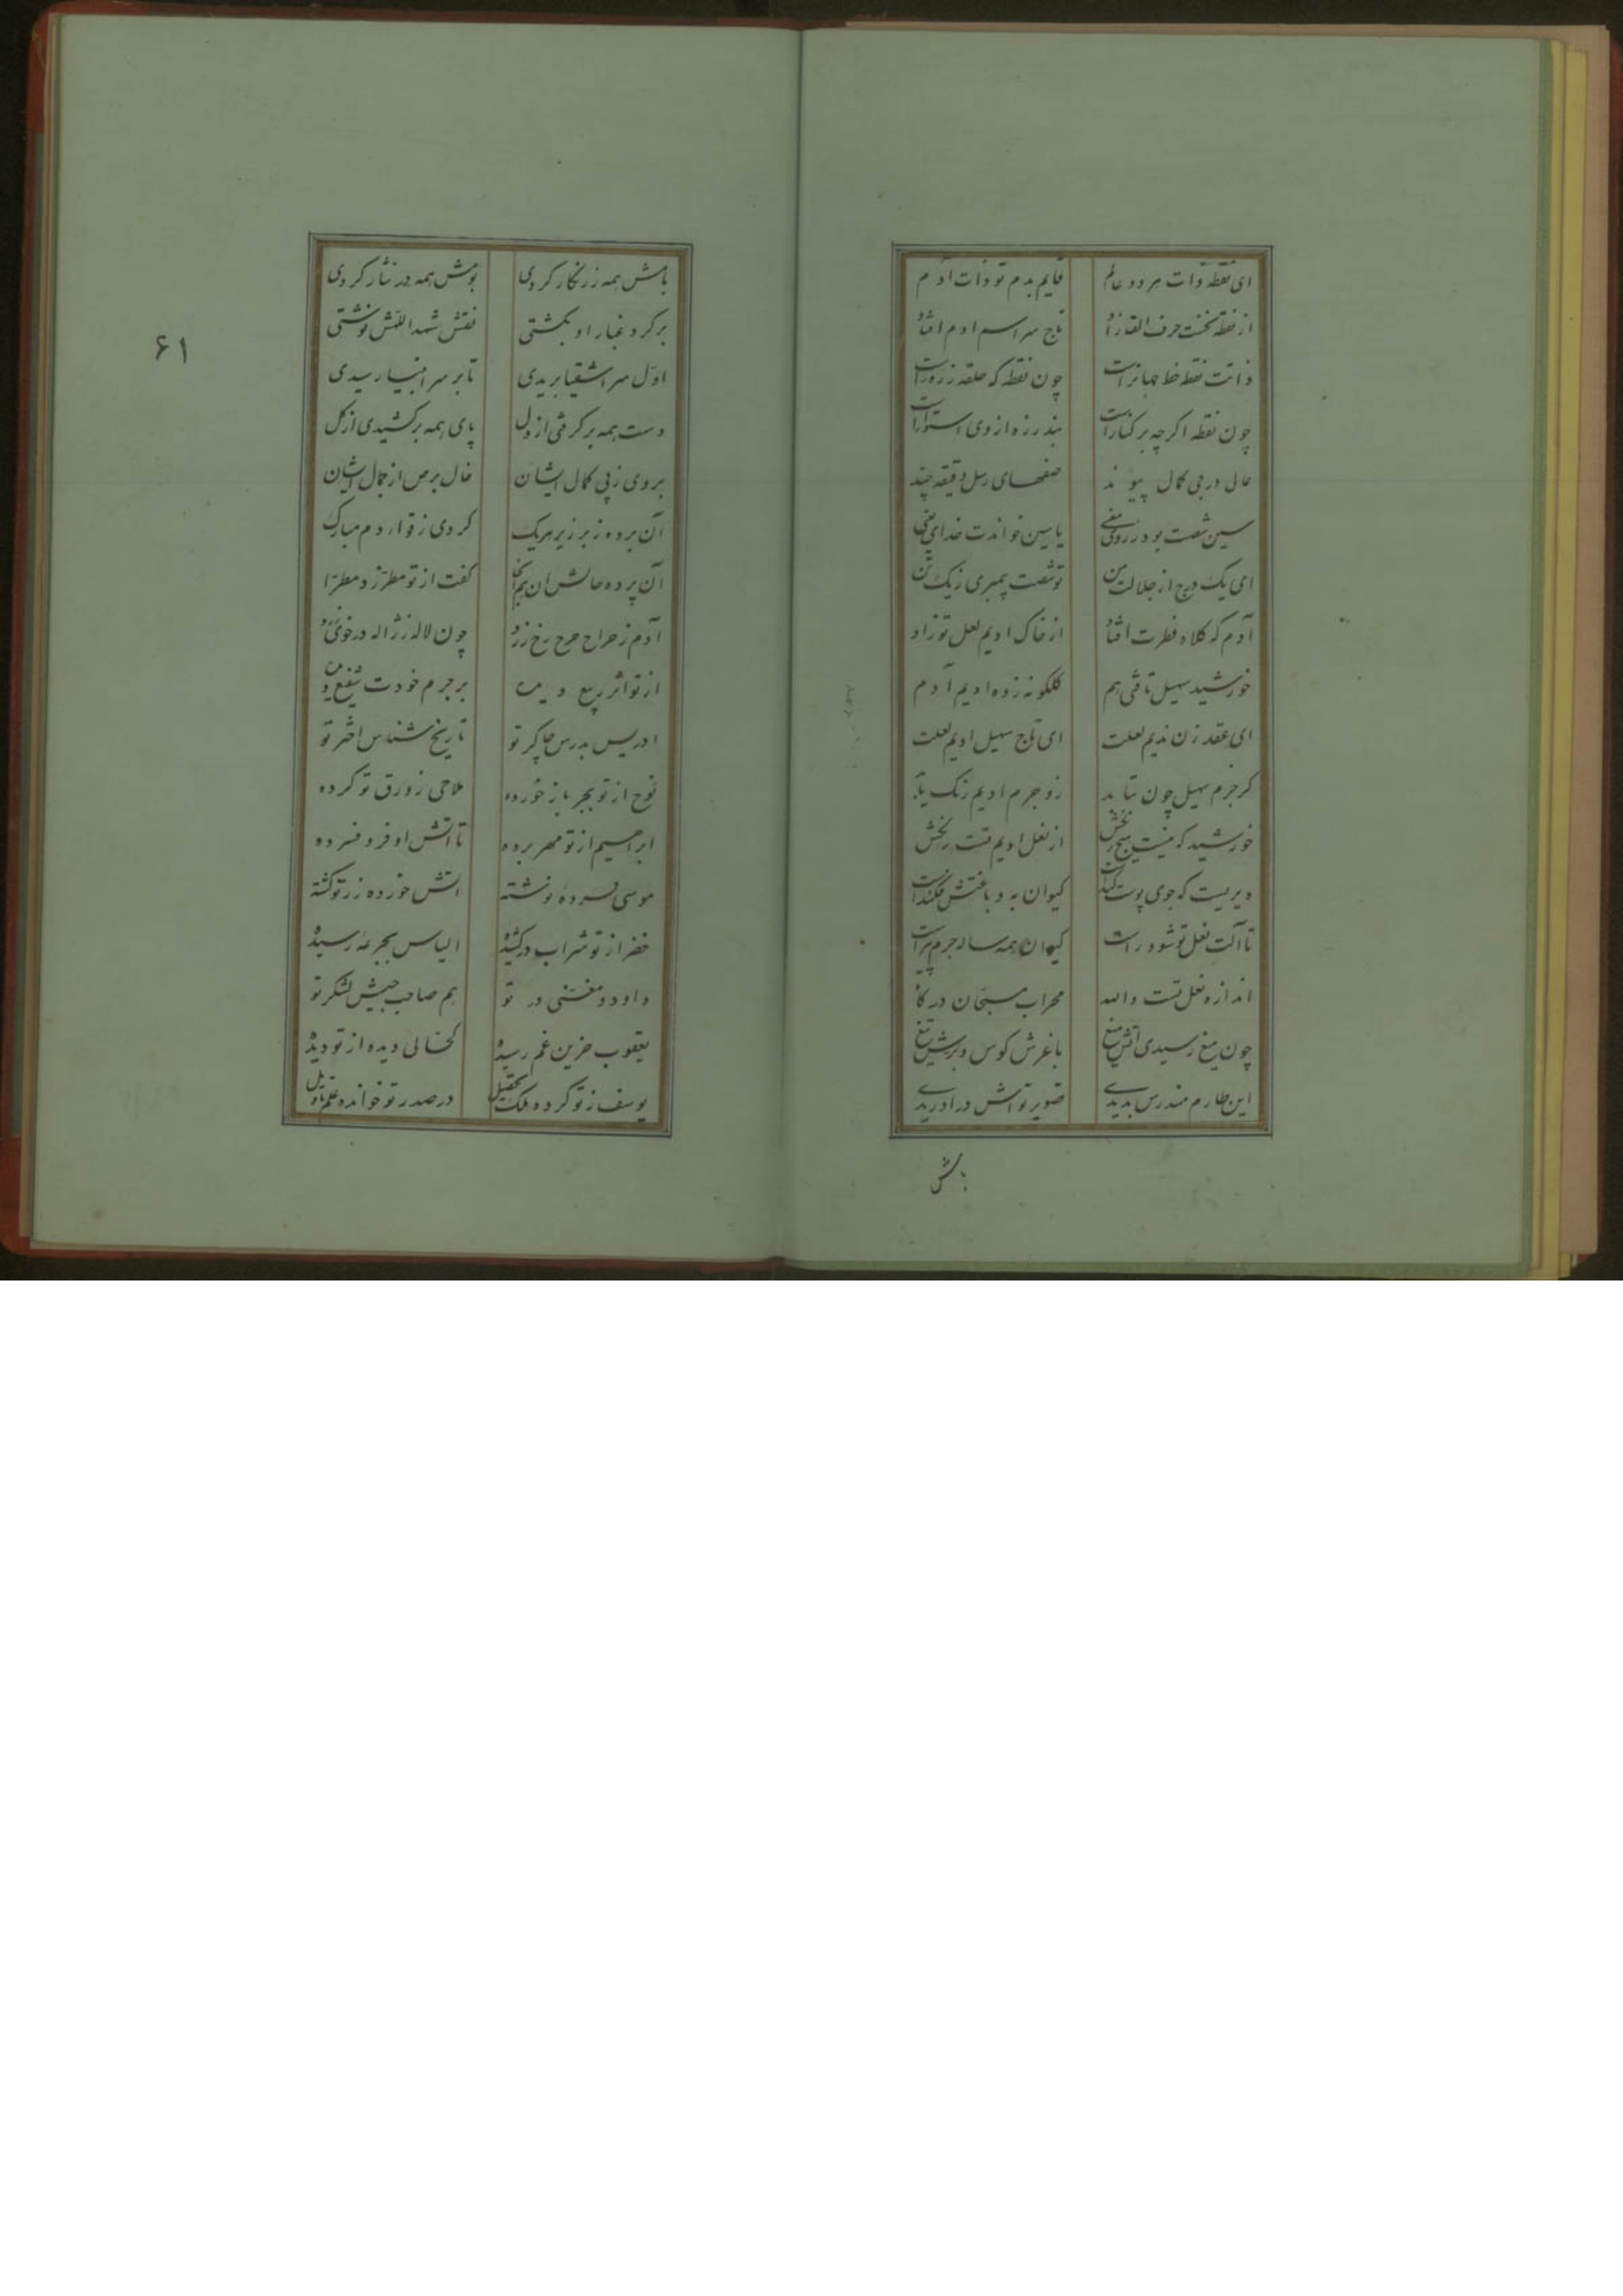 ای نقطه ذات هر دو عالم قایم بدم تو ذات آدم
از نقطه نخست حرف القا زاد تاج سر اسم ادم افتاد
ذاتت نقطه خط جهانراست چون نقطه که حلقه زره راست
چون نقطه اگرچه بر کنارا‌ست بند زره از وی استوارا‌ست
عالی درجی کمال پیوند صفهای رسل دقیقه چند
سین شصت بود در روی معنی یاسین خواندت خدای یعنی
ای یک درج از جلالت من تو شصت پیمبری ز یک تن
آدم که کلاه فطرت افتاد از خاک ادیم لعل تو زاد
خورشید سهیل تافتی هم گلگونه زده ادیم آدم
ای عقد زن ندیم لعلت ای تاج سهیل ادیم لعلت
کر جرم سهیل چون بتابد زو جرم ادیم رنگ یابد
خورشید که نیست هیچ رخش از نعل ادیم تست رخش
دیریست که جوی پوست کنداست کیوان به دباغتش فکنداست
تا آلت نعل تو شود راست کیوان همه ساله جرم پیراست
اندازه نعل تست والله محراب مسبحان درگاه
چون میغ رسیدی اتش میغ با غرش کوس و برش تیغ
این طارم مندرس بدیدی تصویر تواش در ادریدی
بامش
۶۱
بامش همه زرنگار کردی بومش همه در نثار کردی
بر گرد غبار او بگشتی نقش شهد اللهش نوشتی
اول سر اشقیا بریدی تا بر سر انبیا رسیدی
دست همه بر گرفتی از دل پای همه برکشیدی از گل
بردی ز پی کمال ایشان خال برص از جمال ایشان
آن پرده ز بر زیر هریک کردی ز قواره دم مبارک
آن پرده حالش ان بهم گفت از تو مطرز و مطرا
آدم ز حراج حرح رخ زرد چون لاله ز ژاله در خوی
از تو اثر ربیع دیده بر جرم خودت شفیع دیده
ادریس بدرس چاکر تو تاریخ شناس اختر تو
نوح از تو ببحر باز خورده ملاحی زورق تو کرده
ابراهیم از تو مهر برده تا اتش او فرو فسرده
موسی فسرده نوشته اتش خورده زر تو گشته
خضر از تو شراب درکشیده الیاس بجرعه رسیده
داود مغنی در تو هم صاحب جیش لشکر تو
یعقوب حزین غم رسیده کحالی دیده از تو دیده
یوسف ز تو کرده ملک تحقیل در صدر تو خوانده علم تاویل